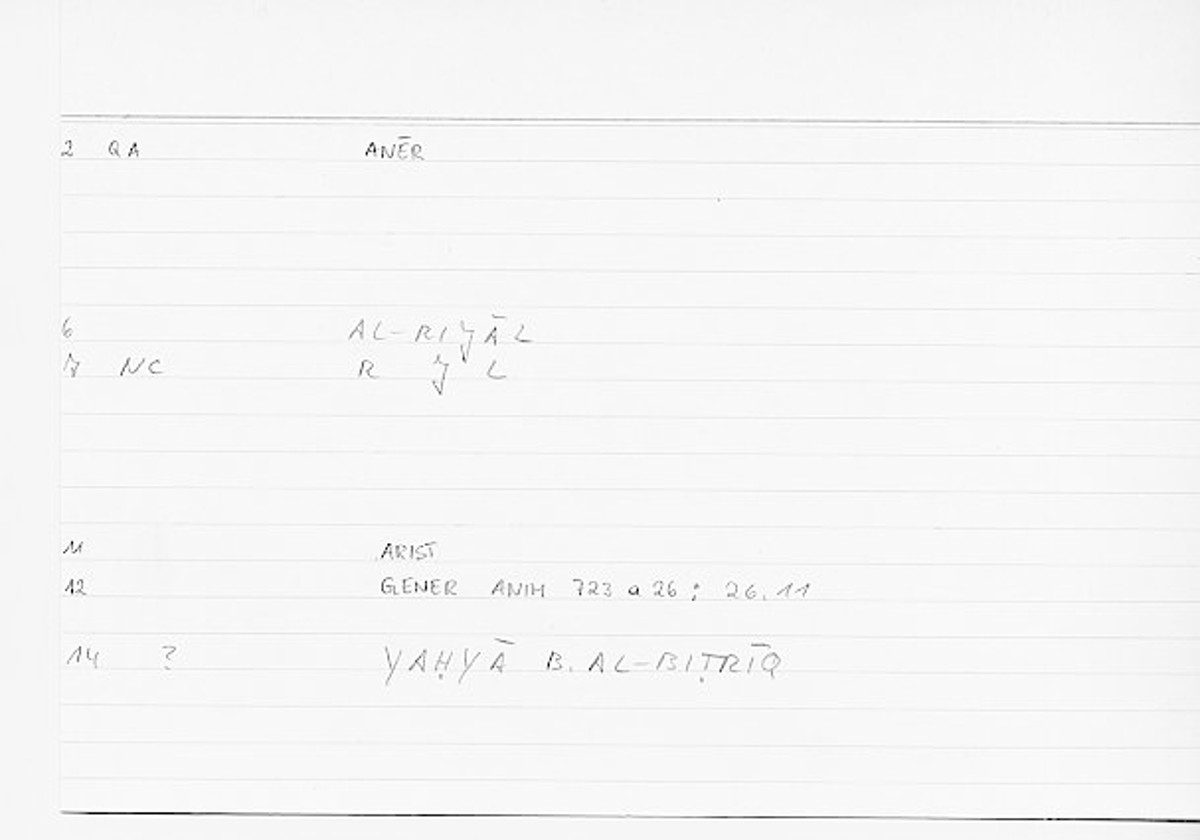 2 QA ANĒR
6 AL-RIǦĀL
7 NC R Ǧ L
11 ARIST
12 GENER ANIM 723 a 26 ; 26.11
14 ? YAḤYĀ B. AL-BIṬRĪQ